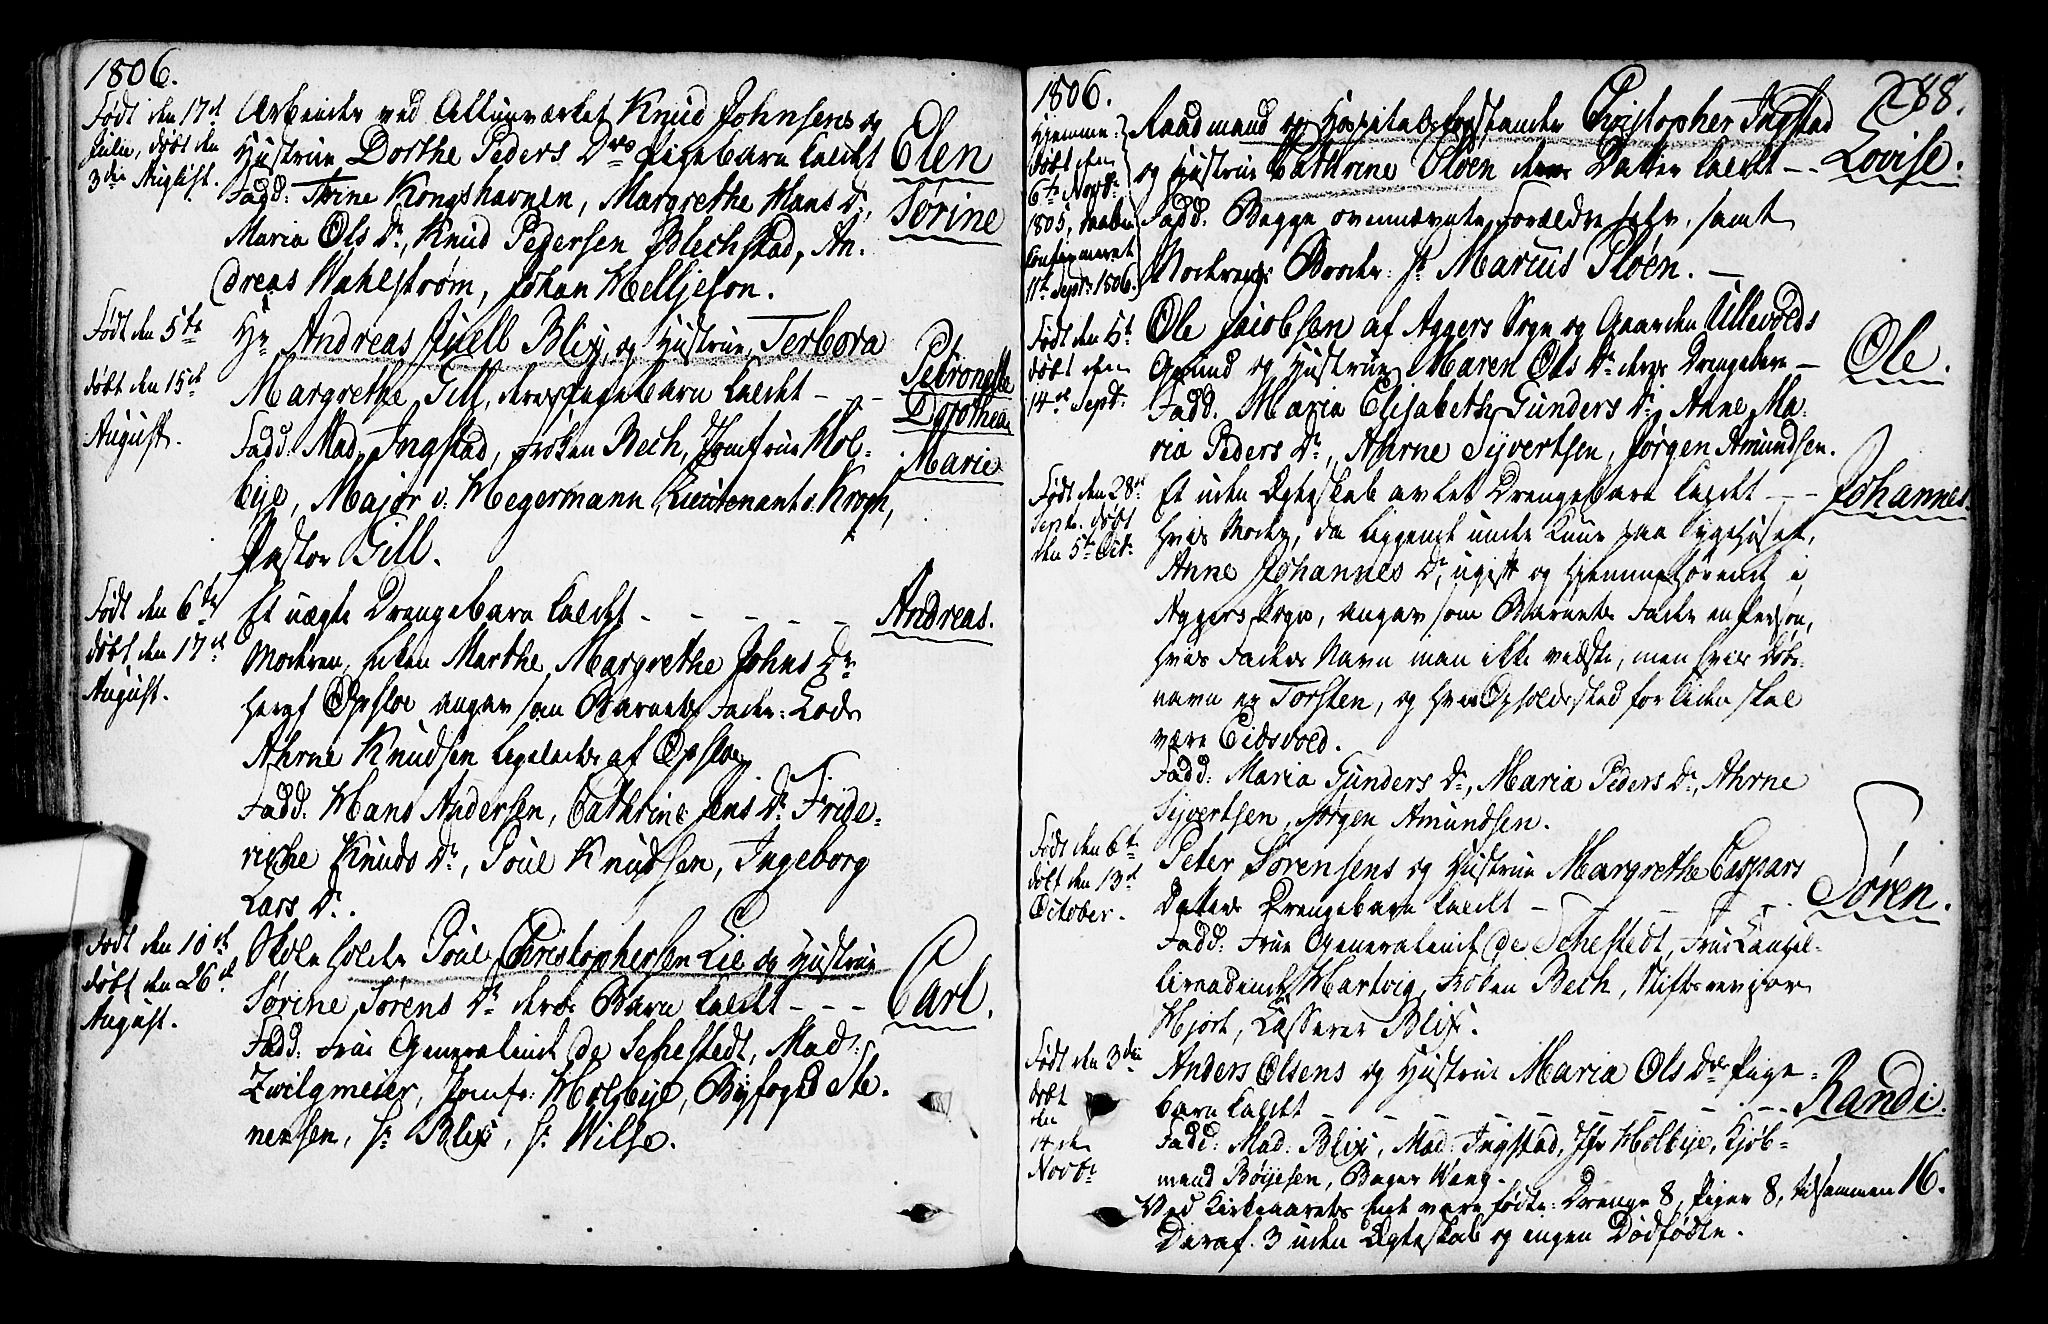 1806.
Født den 17de
Julii, døbt den
3die August.
Arbeider ved Allunværket Knud Johnsens og
Hustrue Dorthe Peders Drs Pigebarn kaldt
Elen
Sørine
Fadd: Trine Kongshavnen, Margrethe Hans Dr,
Maria Ols Dr, Knud Pedersen Blechstad, An-
dreas Wahlstrøm, Johan Helljeson.
Født den 5te
døbt den 15de
August.
Hr Andreas Juell Blix, og Hustrue Terbora
Margrethe Gill, deres Pigebarn kaldt - - -
Petronelle
Dorothea
Marie
Fadd: Mad. Ingstad, Frøken Bech, Jomfrue Hol-
bye, Major v: Hegermann, Lieutenant v: Krogh,
Pastor Gill.
Født den 6te
døbt den 17de
August.
Et uægte Drengebarn kaldt - - - - -
Andreas.
Moderen, Enken Marthe Margrethe Johns Dr
her af Opsloe angav som Barnets Fader: Lods
Ahrne Knudsen ligeledes af Opsloe
Fadd: Hans Andersen, Cathrine Jens Dr. Fride-
riche Knuds Dr, Poul Knudsen, Ingeborg
Lars Dr.
Født den 10de
døbt den 26de
August.
Skoleholder Poul Christophersen Lie og Hustrue
Sørine Sørens Dr deres Barn kaldt - - -
Carl.
Fadd: Frue Generalinde de Sehestedt, Mad:
Zwilgmeier, Jomfr: Holbye, Byfogd Ste-
nersen, Hr Blix, Hr Wilse.
1806.
288.
Hjemme-
døbt den
6te Novbr
1805, men
Confirmeret
11te Septr 1806.
Raadmand og Hospitalsforstander Christopher Ingstad
og Hustrue Cathrine Ploen deres Datter kaldt - -
Lovise.
Fadd. Begge ovennævnte Forældre selv, samt
Moderens Broder Hr Marius Ploen. -
Født den 5te
døbt den
14de Septr.
Ole Jacobsen af Aggers Sogn og Gaarden Ullevolds
Grund og Hustrue Maren Ols Dr deres Drengebarn -
Ole.
Fadd. Maria Elisabeth Gunders Dr, Anne Ma-
ria Peders Dr, Ahrne Syvertsen, Jørgen Amundsen.
Født den 28de
Septr. døbt
den 5te Octr.
Et uden Ægteskab avlet Drengebarn kaldt - -
Johannes.
hvis Moder, da liggende under Kuur paa Sygehuset,
Anne Johannes Dr, ugift og hjemmehørende i
Aggers Sogn, angav som Barnets Fader en Person,
hvis Faders Navn man ikke vidste, men hvis Døbe-
navn er Torsten, og hvis Opholdssted for Tiden skal
være Eidsvold.
Fadd: Maria Gunders Dr, Maria Peders Dr, Ahrne
Syvertsen, Jørgen Amundsen.
Født den 6te
døbt den 13de
October.
Peter Sørensens og Hustrue Margrethe Caspars
Datters Drengebarn kaldt - - - -
Søren.
Fadd: Frue Generalinde de Sehestedt, Frue Cancel-
liraadinde Hartvig, Frøken Bech, Stiftsrevisor
Hjort, Casserer Blix.
Født den 3die
døbt
den
Novbr
Anders Olsens og Hustrue Maria Ols Drs Pige-
barn kaldt - - - - - -
Randi.
Fadd: Mad: Blix, Mad: Ingstad, Jfr Holbye, Kjøb-
mand Børjesen, Bager Wang.
Ved Kirkeaarets Ende vare fødte: Drenge 8, Piger 8, tilsammen 16.
Deraf 3 uden Ægteskab og ingen Dødfødte.